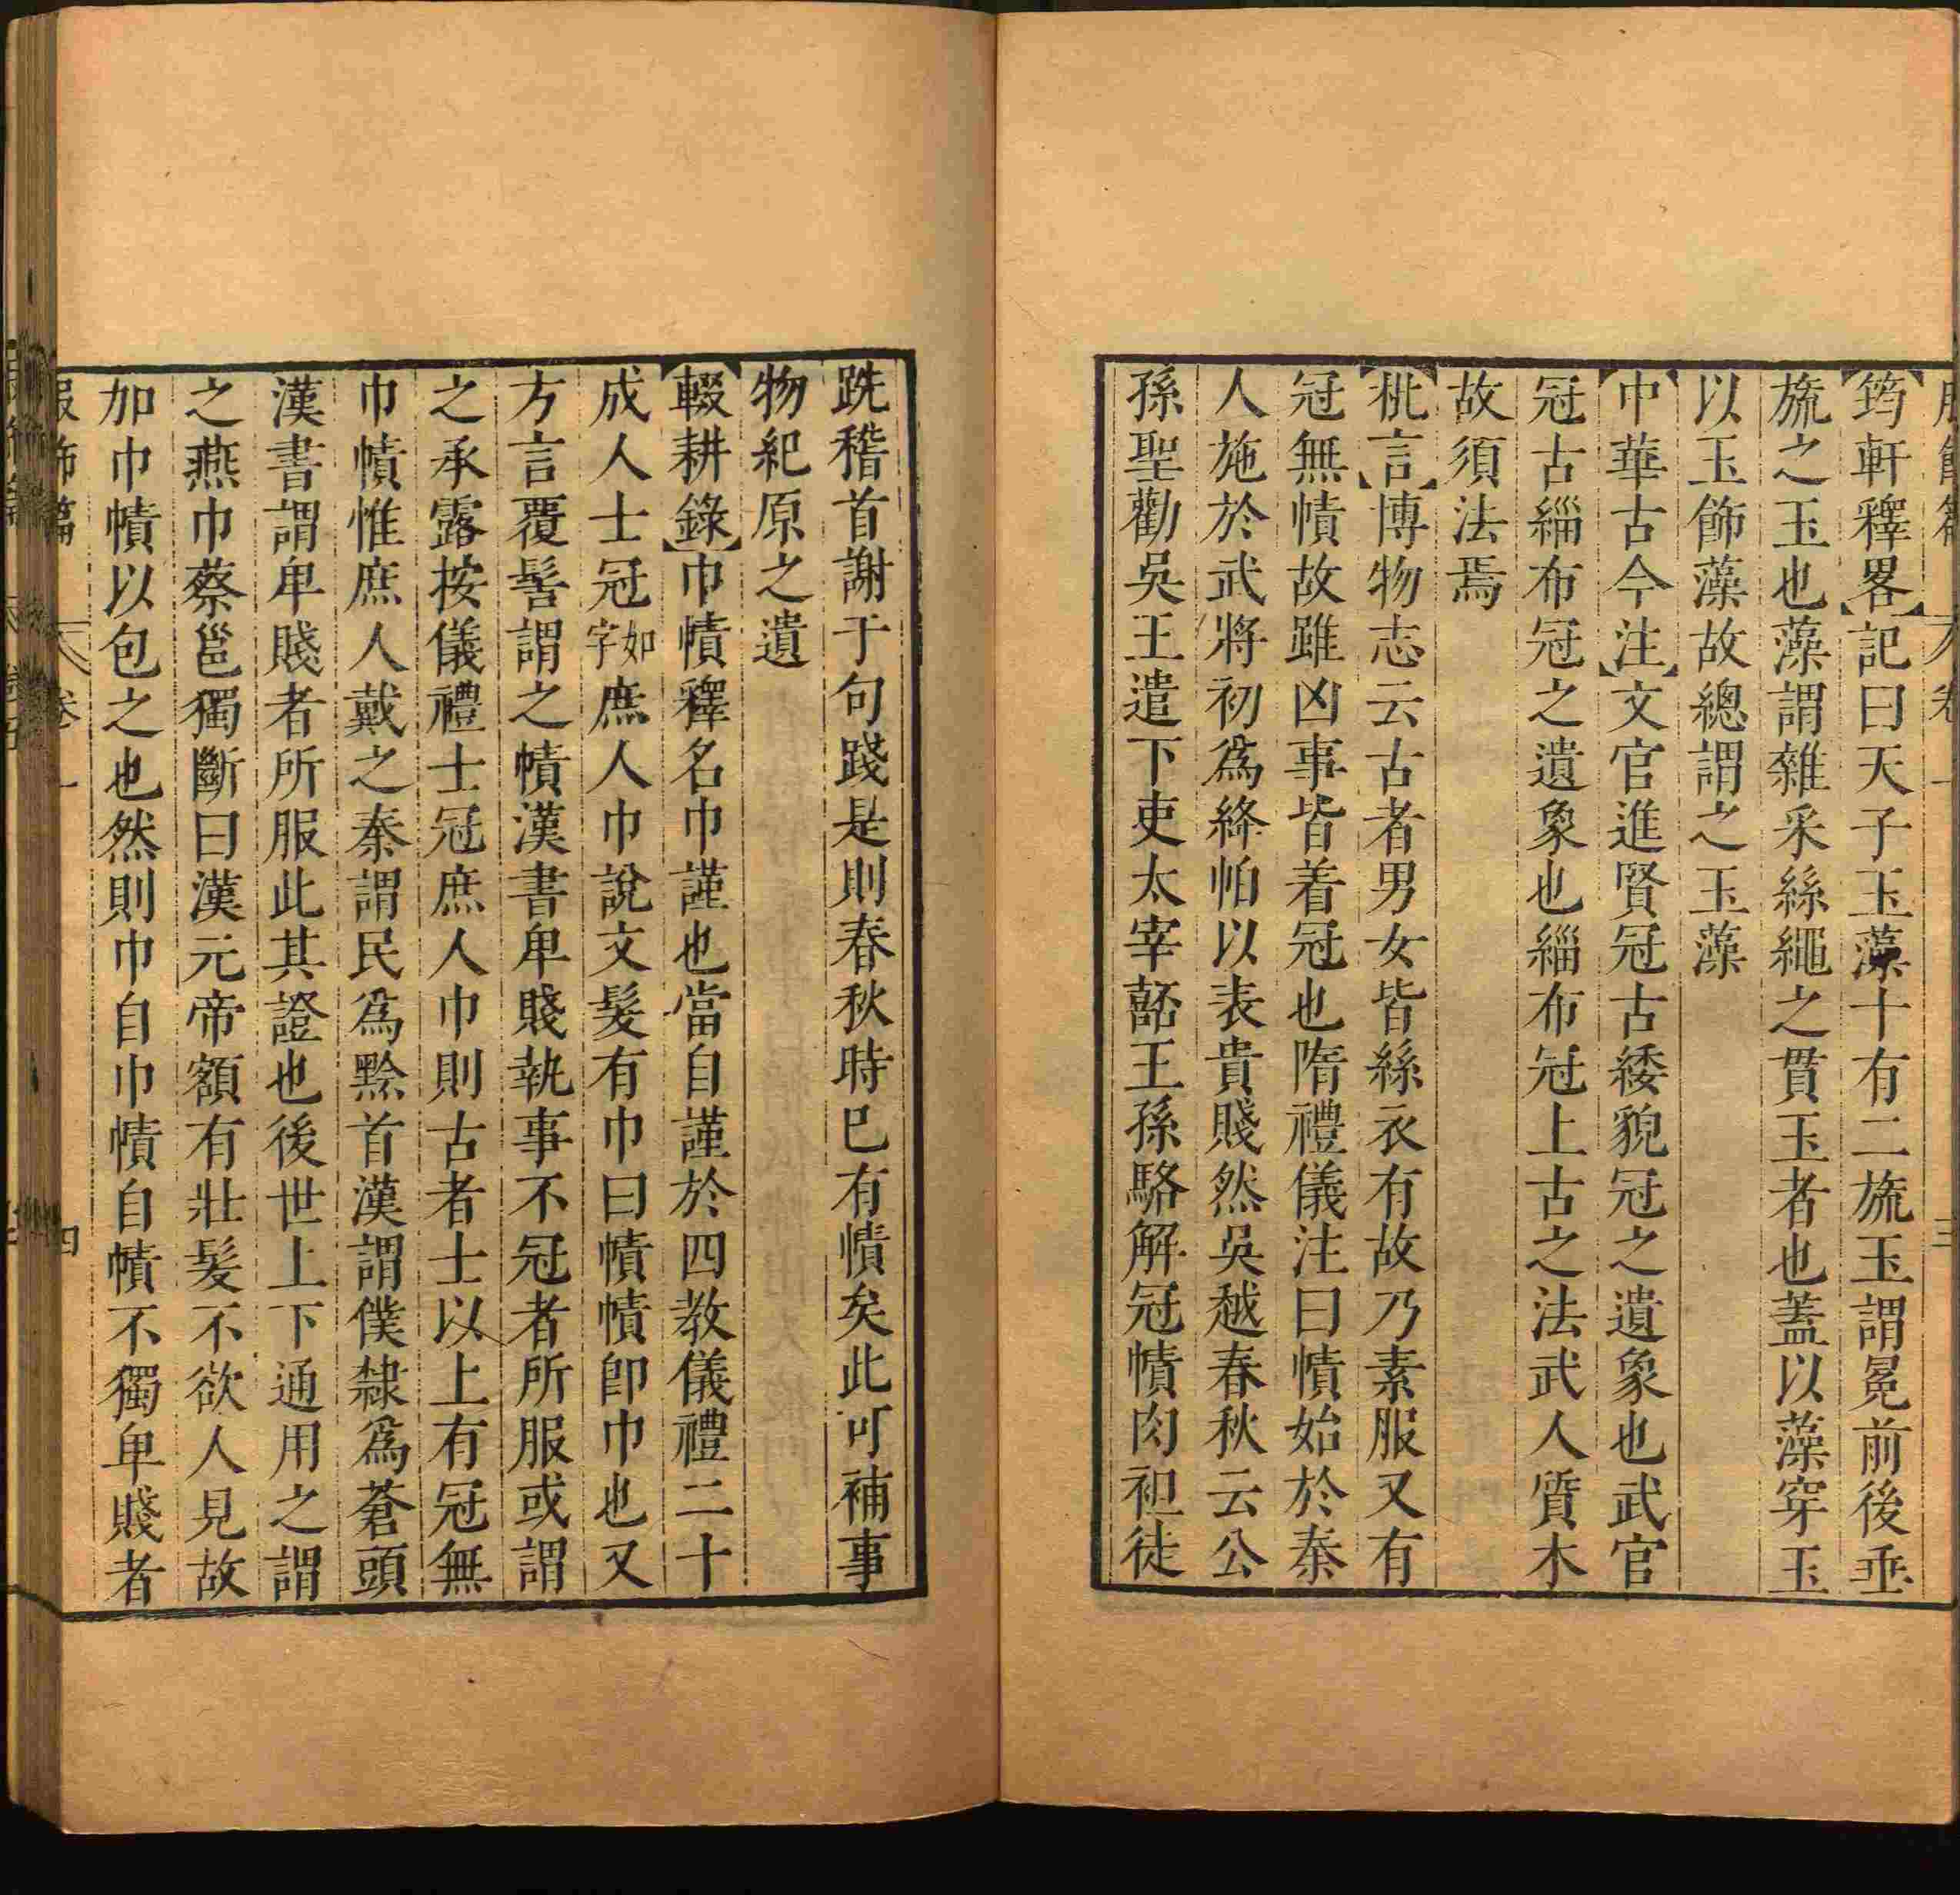 筠軒釋畧記曰天子玉藻十有二旒玉謂冕前後垂
旒之玉也藻謂雜采絲繩之貫玉者也蓋以藻穿玉
以玉飾藻故總謂之玉藻
中華古今注文官進賢冠古緌貌冠之遺象也武官
冠古緇布冠之遺象也緇布冠上古之法武人質木
故須法焉
枇言博物志云古者男女皆絲衣有故乃素服又有
冠無幘故雖凶事皆着冠也隋禮儀注曰幘始於秦
人施於武將初爲絳帕以表貴賤然吳越春秋云公
孫聖勸吳王遣下吏太宰嚭王孫駱解冠幘肉袒徒
跣稽首謝于句踐是則春秋時已有幘矣此可補事
物紀原之遺
輟耕錄巾幘釋名巾謹也當自謹於四教儀禮二十
成人士冠如字庶人巾說文髮有巾曰幘幘卽巾也又
方言覆髻謂之幘漢書卑賤執事不冠者所服或謂
之承露按儀禮士冠庶人巾則古者士以上有冠無
巾幘惟庶人戴之秦謂民爲黔首漢謂僕隸爲蒼頭
漢書謂卑賤者所服此其證也後世上下通用之謂
之燕巾蔡邕獨斷曰漢元帝額有壯髮不欲人見故
加巾幘以包之也然則巾自巾幘自幘不獨卑賤者